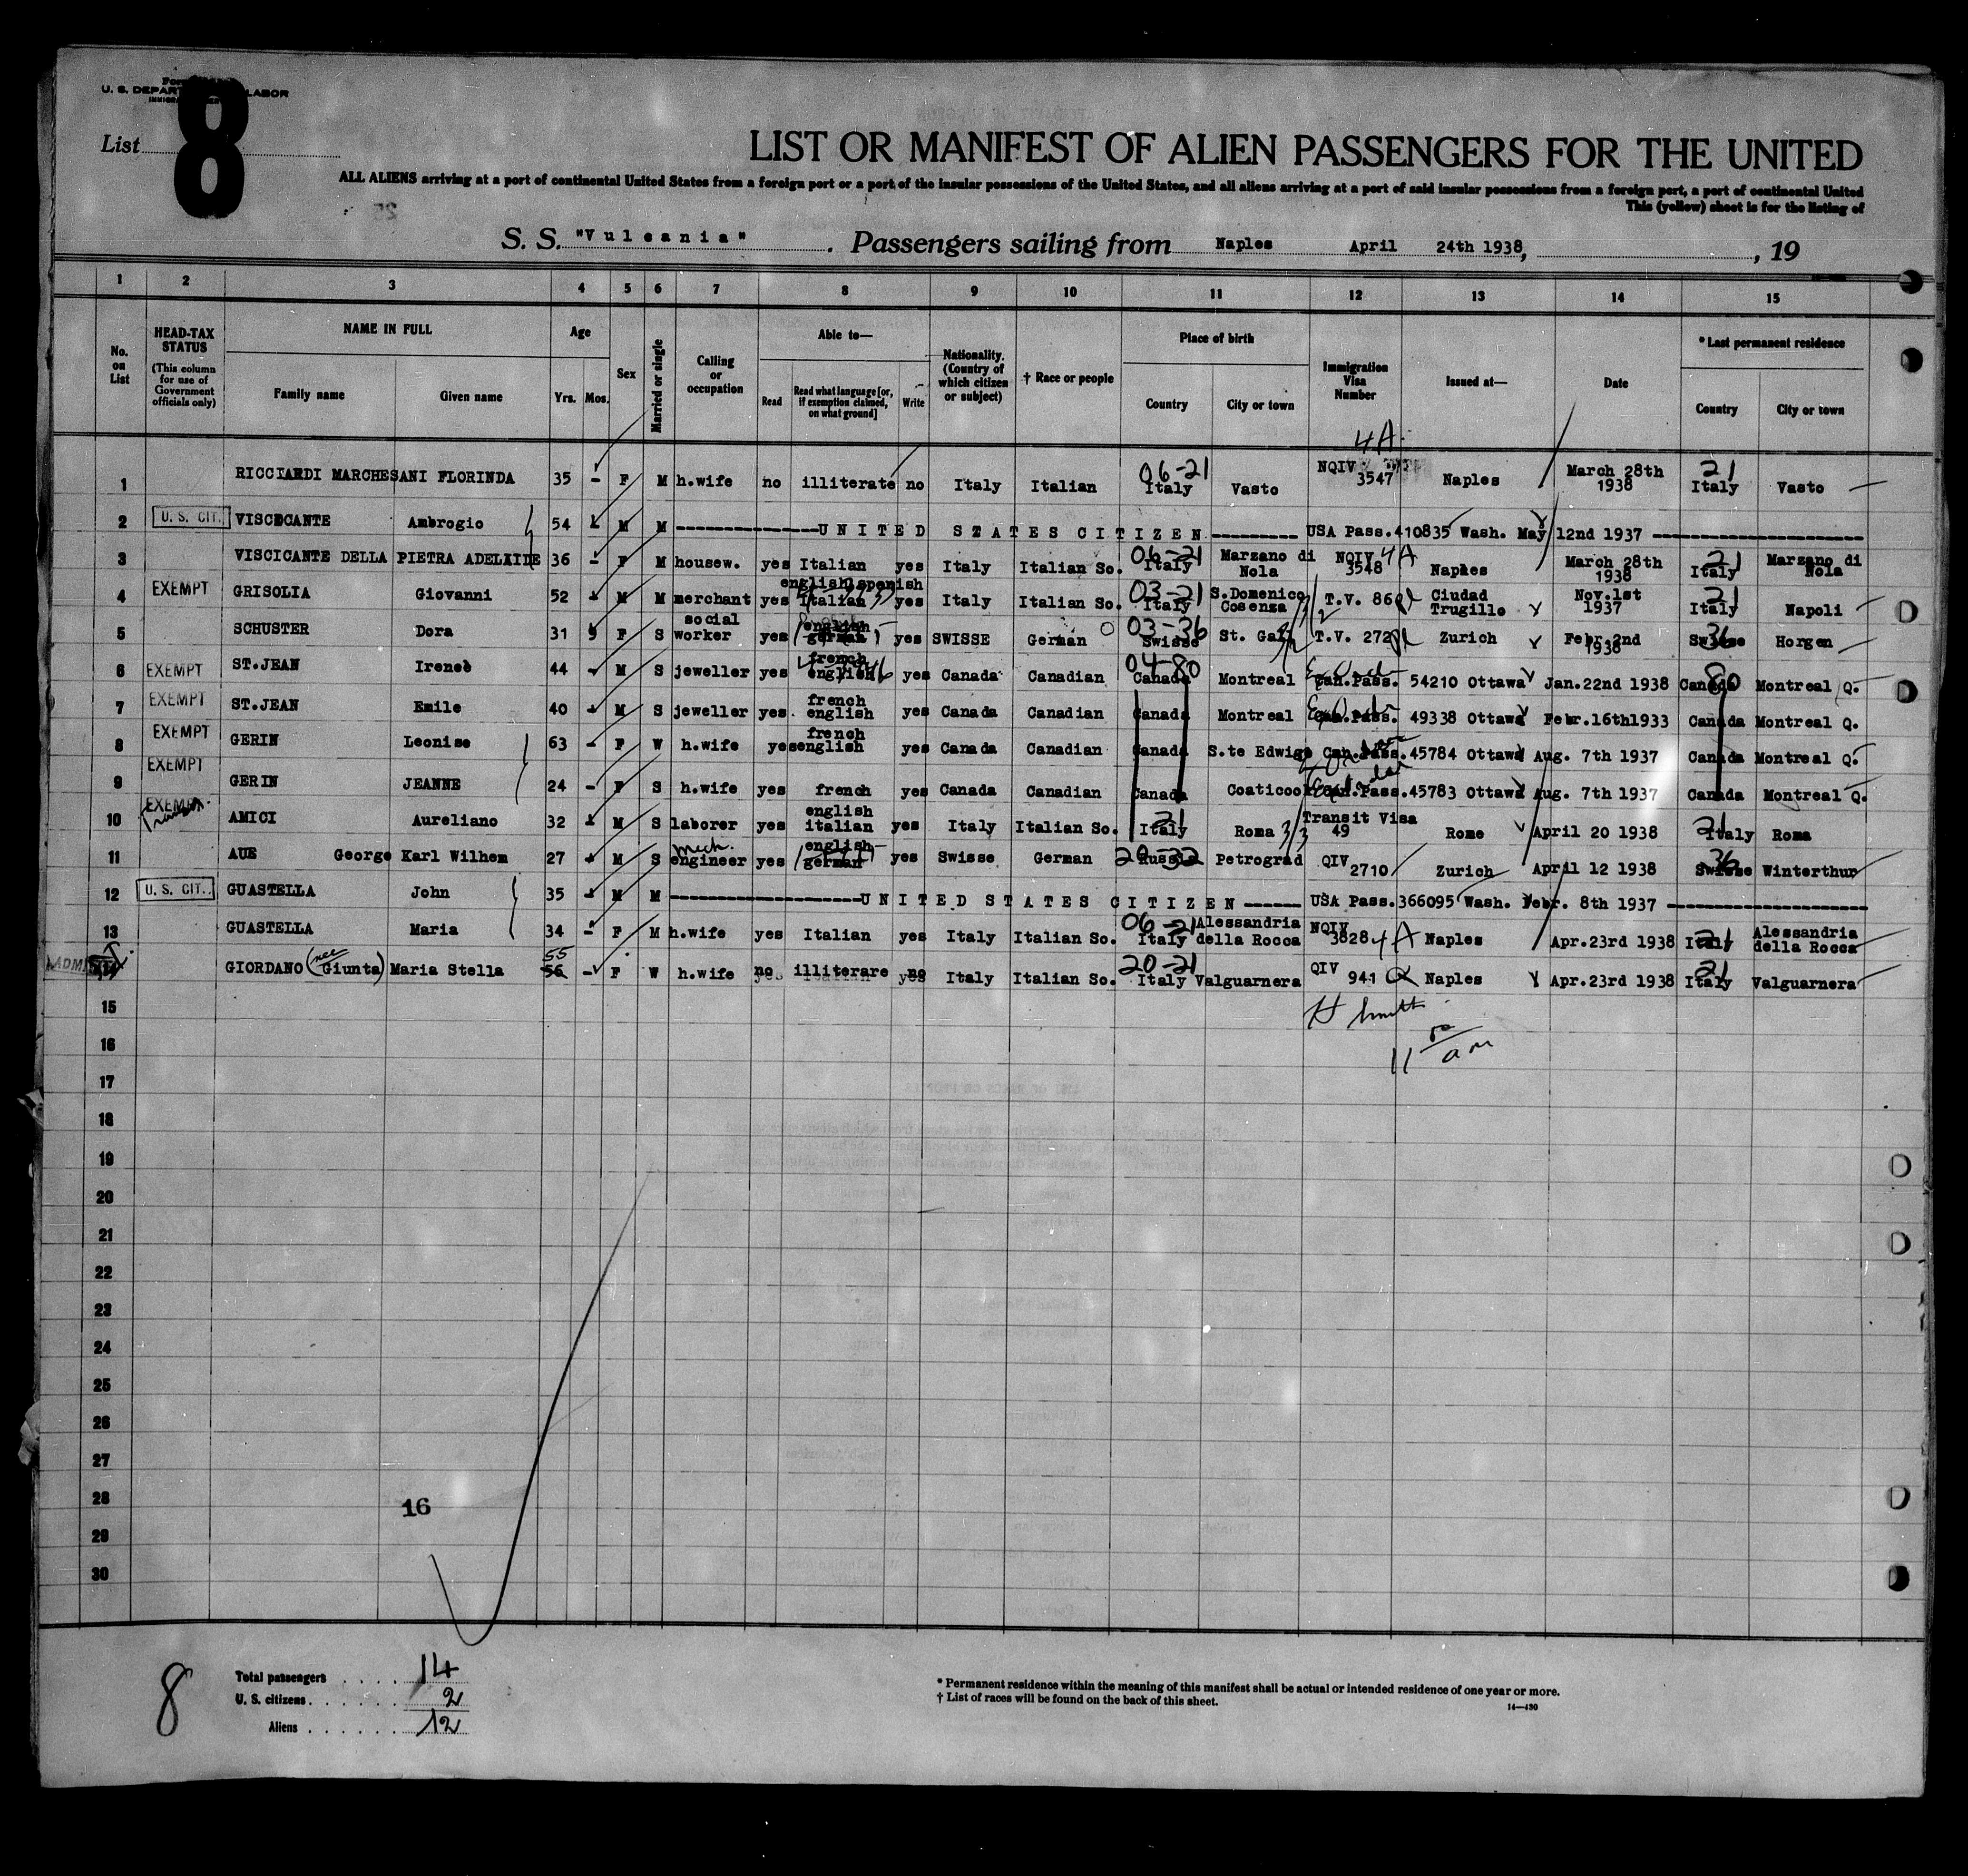 U. S. DEPARTMENT LABOR
List 8
LIST OR MANIFEST OF ALIEN PASSENGERS FOR THE UNITED
ALL ALIENS arriving at a port of continental United States from a foreign port or a port of the insular possessions of the United States, and all aliens arriving at a port of said insular possessions from a foreign port, a port of continental United
This (yellow) sheet is for the listing of
S. S. "Vulcania" . Passengers sailing from Naples April 24th 1938, , 19
1 2 3 4 5 6 7 8 9 10 11 12 13 14 15
No. on List
HEAD-TAX STATUS (This column for use of Government officials only)
NAME IN FULL
Family name Given name
Age
Yrs. Mos.
Sex
Married or single
Calling or occupation
Able to—
Read Read what language [or, if exemption claimed, on what ground] Write
Nationality. (Country of which citizen or subject)
† Race or people
Place of birth
Country City or town
Immigration Visa Number
Issued at—
Date
* Last permanent residence
Country City or town
4A
1 RICCIARDI MARCHESANI FLORINDA 35 - F M h.wife no illiterate no Italy Italian 06-21 Italy Vasto NQIV 3547 Naples March 28th 1938 21 Italy Vasto
2 U. S. CIT. VISCECANTE Ambrogio 54 M M UNITED STATES CITIZEN USA Pass.410835 Wash. May 12nd 1937
3 VISCICANTE DELLA PIETRA ADELAIDE 36 - F M housew. yes Italian yes Italy Italian So. 06-21 Italy Marzano di Nola NQIV 3548 4A Naples March 28th 1938 21 Italy Marzano di Nola
4 EXEMPT GRISOLIA Giovanni 52 M M merchant yes english spanish Italian yes Italy Italian So. 03-21 Italy S.Domenico Cosenza T.V. 86 Ciudad Trugillo Nov.1st 1937 21 Italy Napoli
5 SCHUSTER Dora 31 9 F S social worker yes english german yes SWISSE German 03-36 Swisse St. Gall T.V. 272 Zurich Febr.2nd 1938 36 Swisse Horgen
6 EXEMPT ST.JEAN Ireneè 44 - M S jeweller yes french english yes Canada Canadian 04-80 Canada Montreal Can.Pass. 54210 Ottawa Jan.22nd 1938 80 Canada Montreal Q.
7 EXEMPT ST.JEAN Emile 40 - M S jeweller yes french english yes Canada Canadian Canada Montreal Can.Pass. 49338 Ottawa Febr.16th1933 Canada Montreal Q.
8 EXEMPT GERIN Leonise 63 - F W h.wife yes french english yes Canada Canadian Canada S.te Edwige Can.Pass.45784 Ottawa Aug. 7th 1937 Canada Montreal Q.
9 EXEMPT GERIN JEANNE 24 - F S h.wife yes french yes Canada Canadian Canada Coaticook Can.Pass.45783 Ottawa Aug. 7th 1937 Canada Montreal Q.
10 EXEMPT AMICI Aureliano 32 M S laborer yes english italian yes Italy Italian So. 21 Italy Roma 3/3 Transit Visa 49 Rome April 20 1938 21 Italy Roma
11 AUE George Karl Wilhem 27 M S mech. engineer yes english german yes Swisse German Russia Petrograd QIV 2710 Zurich April 12 1938 36 Swisse Winterthur
12 U. S. CIT. GUASTELLA John 35 M M UNITED STATES CITIZEN USA Pass.366095 Wash. Febr. 8th 1937
13 GUASTELLA Maria 34 - F M h.wife yes Italian yes Italy Italian So. 06-21 Italy Alessandria della Rocca NQIV 3828 4A Naples Apr.23rd 1938 21 Italy Alessandria della Rocca
14 GIORDANO (nee Giunta) Maria Stella 55 56 - F W h.wife no illiterare no Italy Italian So. 20-21 Italy Valguarnera QIV 941 Naples Apr.23rd 1938 21 Italy Valguarnera
15 H Smith
16 11 00 am
17
18
19
20
21
22
23
24
25
26
27
28 16
29
30
8
Total passengers . . . . 14
U. S. citizens . . . . . . 2
Aliens . . . . . . 12
* Permanent residence within the meaning of this manifest shall be actual or intended residence of one year or more.
† List of races will be found on the back of this sheet.
14—430